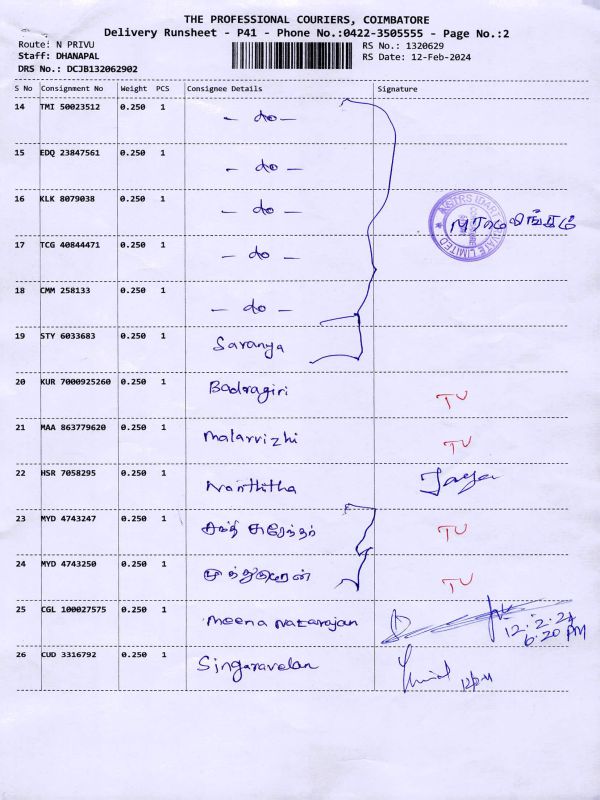 THE PROFESSIONAL COURIERS, COIMBATORE
Delivery Runsheet - P41 - Phone No.:0422-3505555 - Page No.:2
Route: N PRIVU
RS No.: 1320629
Staff: DHANAPAL
RS Date: 12-Feb-2024
DRS No.: DCJB132062902
S No Consignment No Weight PCS Consignee Details Signature
14 TMI 50023512 0.250 1 - do -
15 EDQ 23847561 0.250 1 - do -
16 KLK 8079038 0.250 1 - do -
17 TCG 40844471 0.250 1 - do -
18 CMM 258133 0.250 1 - do -
19 STY 6033683 0.250 1 Saranya
20 KUR 7000925260 0.250 1 Badragiri TU
21 MAA 863779620 0.250 1 Malarvizhi TU
22 HSR 7058295 0.250 1 Nanthitha Jaya
23 MYD 4743247 0.250 1 TU
24 MYD 4743250 0.250 1 TU
25 CGL 100027575 0.250 1 Meena Natarajan 12.2.24
6.20 PM
26 CUD 3316792 0.250 1 Singaravelan